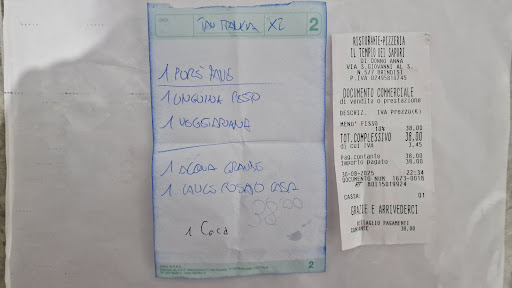 X2
2
1 PURÈ
1 LINGUINA PESTO
1 VEGGETARIANA
1 ACQUA GRANDE
1 CALICE ROSATO CASA
38,00
1 Coca
2
RISTORANTE-PIZZERIA
IL TEMPIO DEI SAPORI
DI DONNO ANNA
VIA S.GIOVANNI AL S.
N.5/7 BRINDISI
DOCUMENTO COMMERCIALE
di vendita o prestazione
DESCRIZ. IVA Prezzo(€)
MENU' FISSO
10% 38,00
TOT.COMPLESSIVO 38,00
di cui IVA 3,45
Pag.contante 38,00
Importo pagato 38,00
30-08-2025 22:34
DOCUMENTO NUM 1673-0018
CASSA: 01
GRAZIE E ARRIVEDERCI
DETTAGLIO PAGAMENTI
CONTANTE 38,00